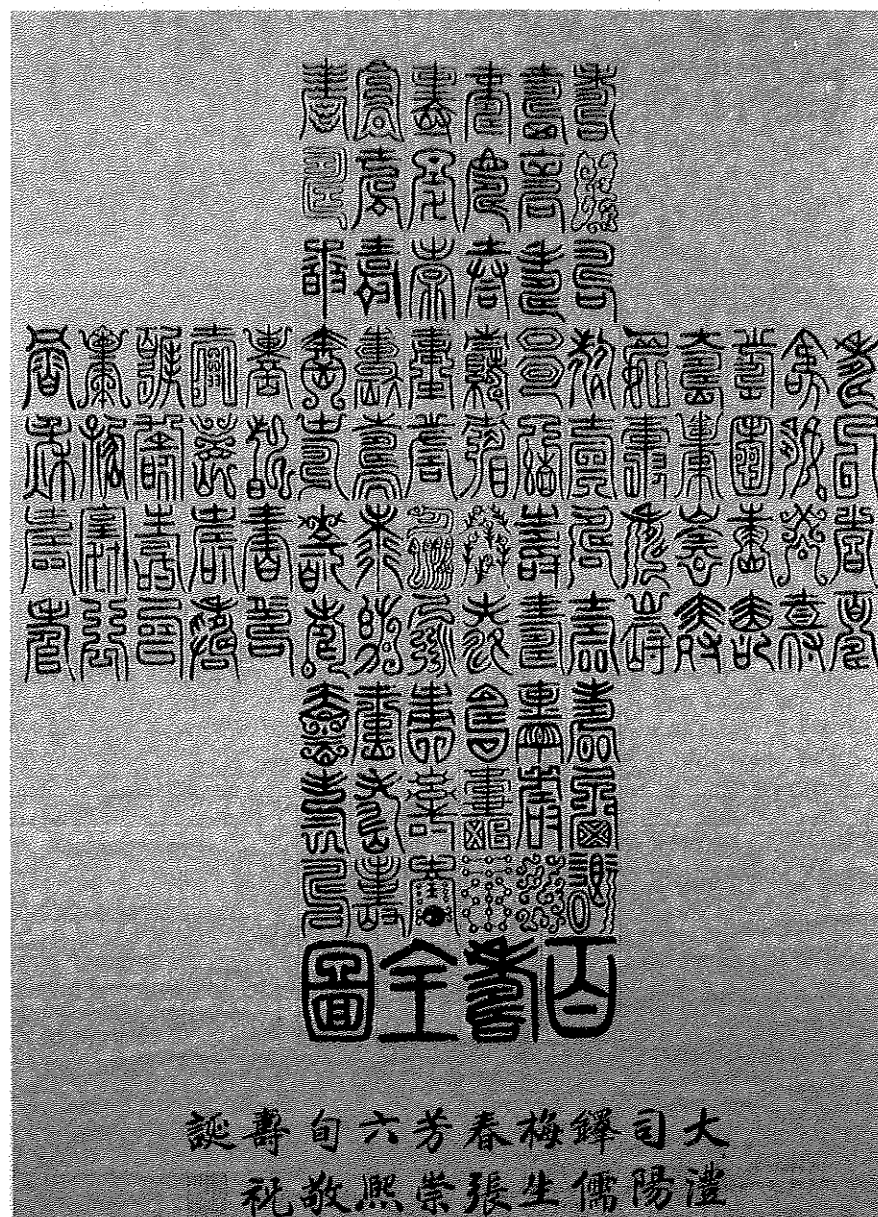 壽壽壽壽壽壽
壽壽壽壽壽壽
壽壽壽壽壽壽
壽壽壽壽壽壽壽壽壽壽壽壽壽壽壽壽
壽壽壽壽壽壽壽壽壽壽壽壽壽壽壽壽
壽壽壽壽壽壽壽壽壽壽壽壽壽壽壽壽
壽壽壽壽壽壽壽壽壽壽壽壽壽壽壽壽
壽壽壽壽壽壽
壽壽壽壽壽壽
壽壽壽壽壽壽
百壽全圖
大司鐸梅春芳六旬壽誕
澧陽儒生張崇熙敬祝